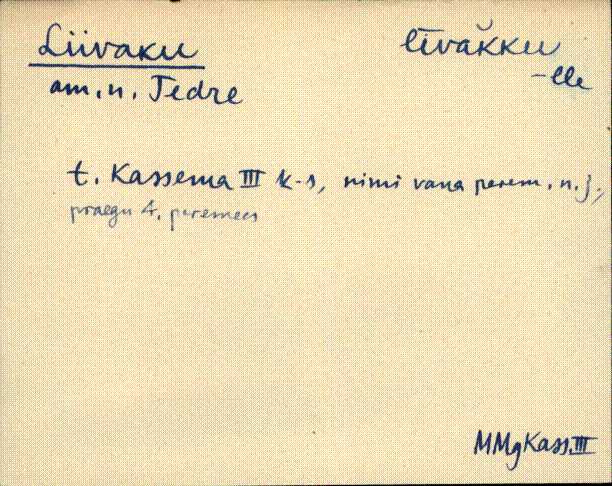 Liivaku līvăkku
-lle
am.n. Tedre
t. Kassema III k-s, nimi vana perem. n. j.,
praegu 4. peremees
MMg Kass. III